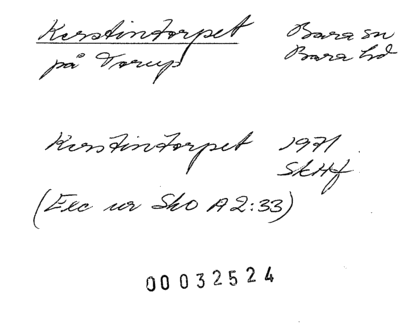 Kerstintorpet Bara sn
på Torup Bara hd
Kerstintorpet 1971
SkHf
(Exc ur SkO A2:33)
00032524